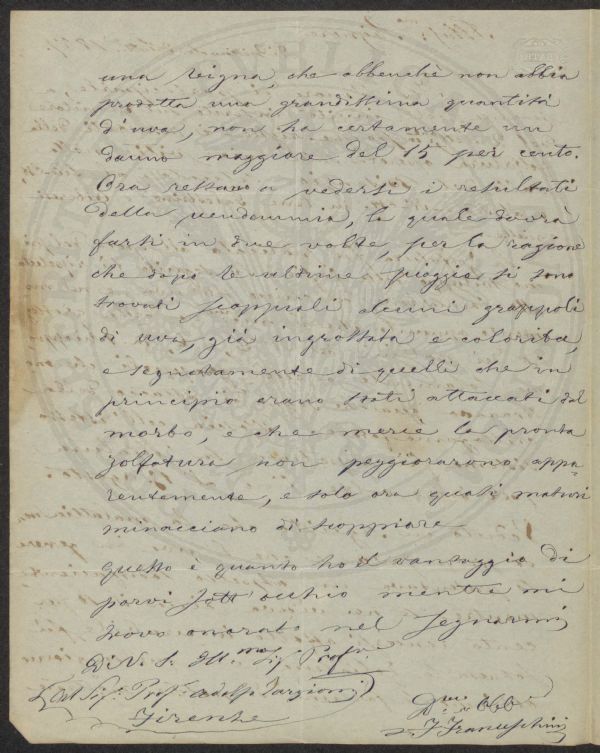 una vigna, che abbenchè non abbia
prodotta una grandissima quantità
d'uva, non ha certamente un
danno maggiore del 15 per cento.
Ora restano a vedersi i resultati
della vendemmia, la quale dovrà
farsi in due volte, per la ragione
che dopo le ultime pioggie si sono
trovati scoppiati alcuni grappoli
di uva, già ingrossata e colorita,
e segnatamente di quelli che in
principio erano stati attaccati dal
morbo, e che mercè la pronta
zolfatura non peggiorarono appa-
rentemente, e solo ora quasi maturi
minacciano di scoppiare
Questo è quanto ho il vantaggio di
porvi sott'occhio mentre mi
trovo onorato nel segnarmi
Di V. S. Ill.ma Sig. Prof.
Sig. Prof. Adolfo Targioni
Firenze
Dev. Obb.
Franceschini